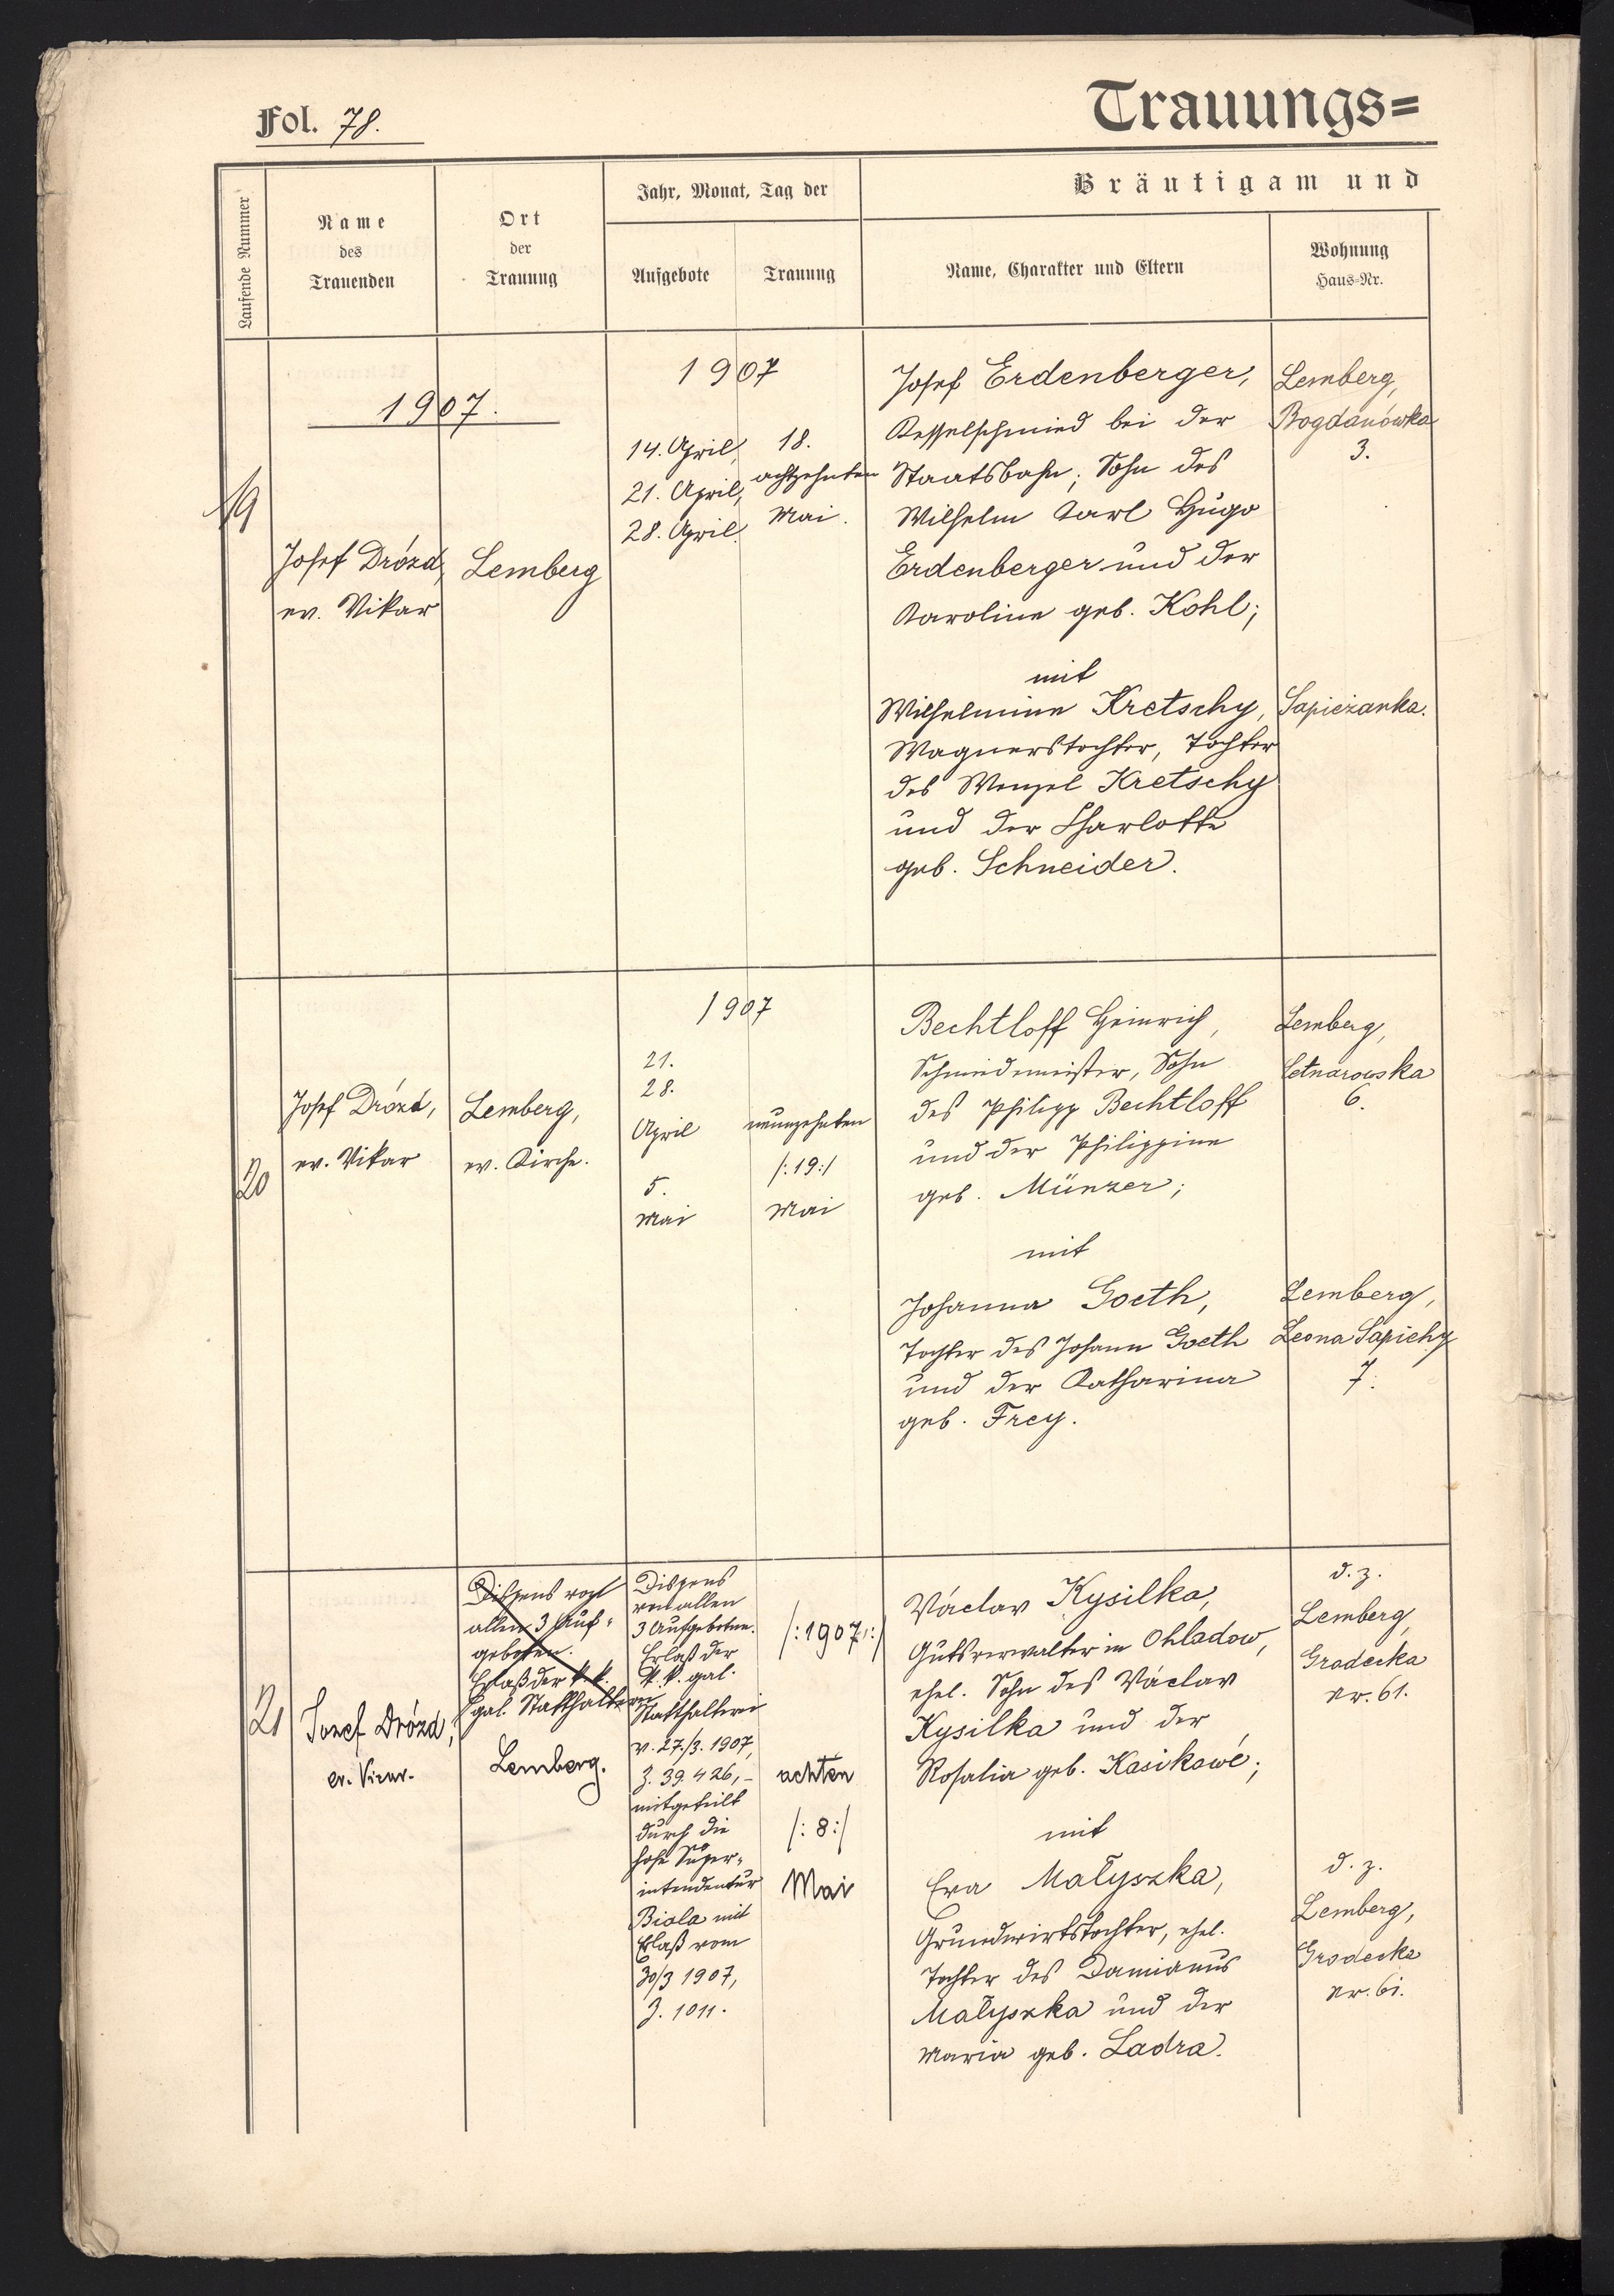 Fol. 78.
Trauungs=
Laufende Nummer
Name
des
Trauenden
Ort
der
Trauung
Jahr, Monat, Tag der
Aufgebote
Trauung
Bräutigam und
Name, Charakter und Eltern
Wohnung
Haus=Nr.
1907.
19
Josef Drózd,
ev. Vikar
Lemberg
1907
14. April,
21. April,
28. April.
18.
achtzehnten
Mai.
Josef Erdenberger,
Kesselschmied bei der
Staatsbahn; Sohn des
Wilhelm Karl Hugo
Erdenberger und der
Karoline geb. Kohl;
mit
Wilhelmine Kretschy,
Wagnerstochter, Tochter
des Wenzel Kretschy
und der Charlotte
geb. Schneider.
Lemberg,
Bogdanówka
3.
Sapieżanka.
20
Josef Drózd,
ev. Vikar
Lemberg,
ev. Kirche.
1907
21.
28.
April
5.
Mai
neunzehnten
/:19:/
Mai
Bechtloff Heinrich,
Schmiedemeister, Sohn
des Philipp Bechtloff
und der Philippine
geb. Münzer;
mit
Johanna Goeth,
Tochter des Johann Goeth
und der Katharina
geb. Frey.
Lemberg,
6.
Lemberg,
Leona Sapiehy
7.
21
Józef Drózd,
ev. Vicar.
Dispens von
allen 3 Auf=
geboten.
Erlaß der k. k.
gal. Statthalterei
Lemberg.
Dispens
von allen
3 Aufgeboten.
Erlaß der
k. k. gal.
Statthalterei
v. 27./3. 1907,
Z. 39.426,-
mitgeteilt
durch die
hohe Super=
intendentur
Biala mit
Erlaß vom
30/3 1907,
Z. 1011.
/:1907:/
achten
/:8:/
Mai
Václav Kysilka,
Gutsverwalter in Ohladow,
ehel. Sohn des Václav
Kysilka und der
Rosalia geb. Kasikowé;
mit
Eva Małyszka,
Grundwirtstochter, ehel.
Tochter des Damianus
Małyszka und der
Maria geb. Ladra.
d. z.
Lemberg,
Grodecka
Nr. 61.
d. z.
Lemberg,
Grodecka
Nr. 61.